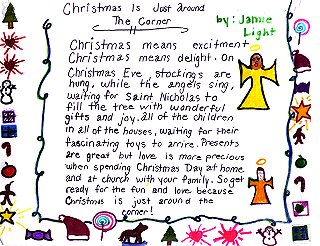 Christmas Is Just around
The Corner
by: Jamie
Light
Christmas means excitment
Christmas means delight. On
Christmas Eve, stockings are
hung, while the angels sing,
waiting for Saint Nicholas to
fill the tree with wonderful
gifts and joy. all of the children
in all of the houses, waiting for their
fascinating toys to arrive. Presents
are great but love is more precious
when spending Christmas Day at home
and at church with your family. So get
ready for the fun and love because
Christmas is just around the
corner!